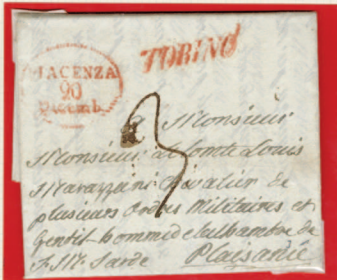 TORINO
PIACENZA
20
Decemb.
3
A Monsieur
Monsieur le Comte Louis
Marazzani Chevalier de
plusieurs Ordres Militaires et
Gentil-homme de la Chambre de
S. M. Sarde Plaisance